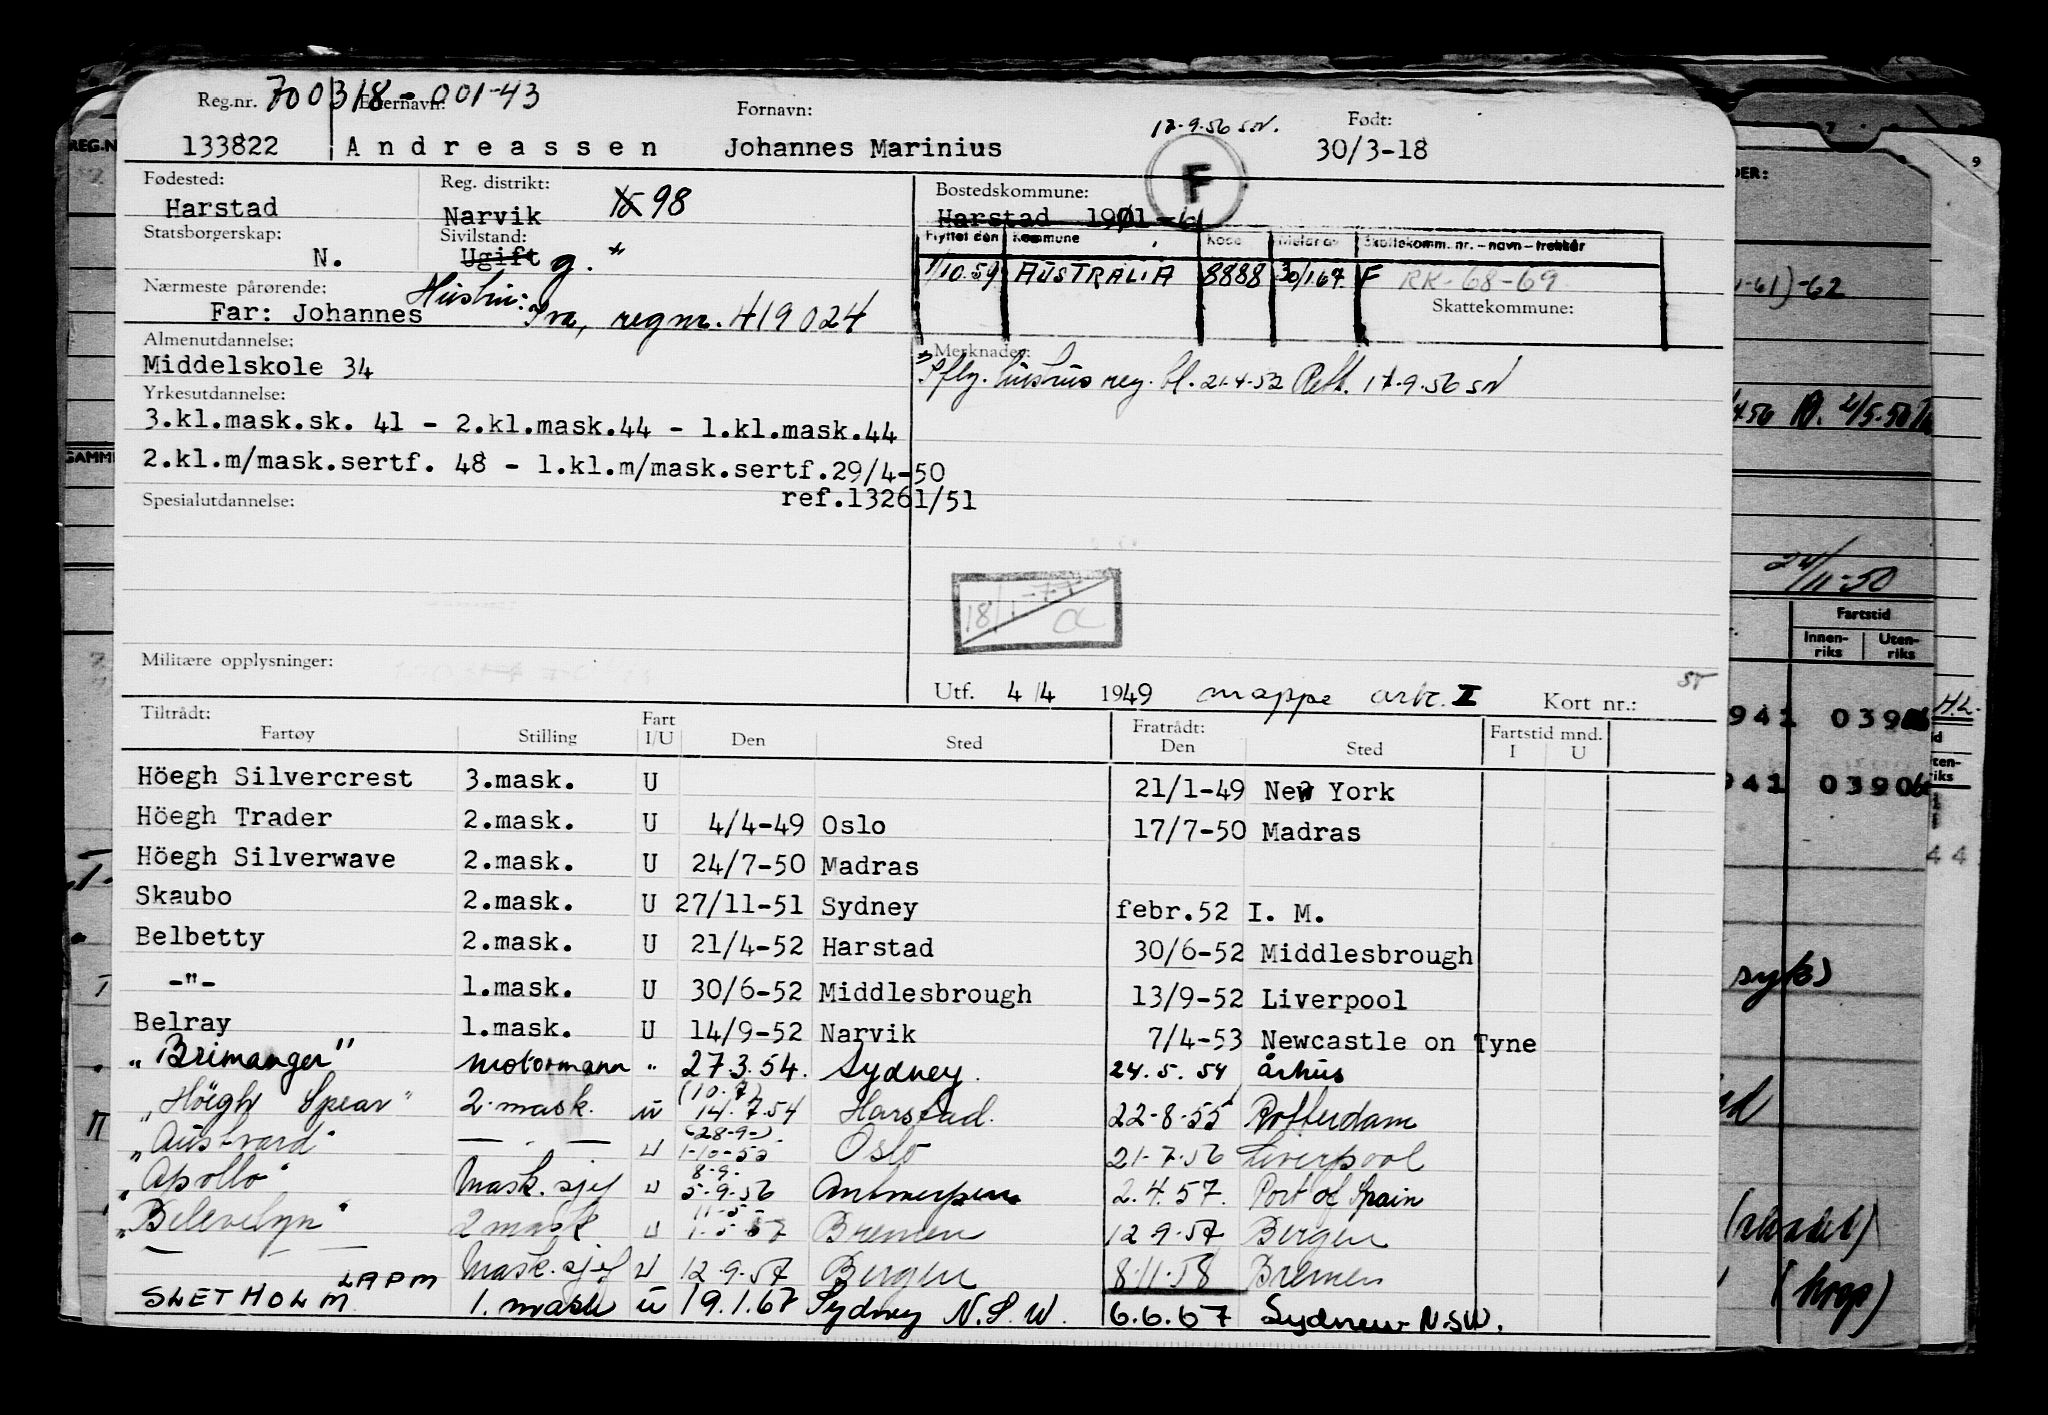 Reg.nr. 700318-001-43 Etternavn: Fornavn: 17.9.56 SN. Født:
133822 Andreassen Johannes Marinius 30/3-18
Fødested: Reg. distrikt: Bostedskommune: F
Harstad Narvik 98 Harstad
Statsborgerskap: Sivilstand: Flyttet den Kommune Kode Melar av Skattekomm. nr. - navn - trekkår
N. Ugift g. 1/10.59 AUSTRALIA 8888 30/1.67. F RK-68-69
Nærmeste pårørende: Skattekommune:
Far: Johannes Hustru: Iva, regnr. 419024
Almenutdannelse: Merknader:
Middelskole 34 Pflg. hustrus reg. bl. 21.4.52 Rett. 17.9.56 SN
Yrkesutdannelse:
3.kl.mask.sk. 41 - 2.kl.mask.44 - 1.kl.mask.44
2.kl.m/mask.sertf. 48 - 1.kl.m/mask.sertf.29/4-50
Spesialutdannelse: ref.13261/51
18/1-77
Militære opplysninger:
Utf. 4/4 1949 mappe ark. I Kort nr.:
Tiltrådt: Fart Fratrådt: Fartstid mnd.
Fartøy Stilling I/U Den Sted Den Sted I U
Höegh Silvercrest 3.mask. U 21/1-49 New York
Höegh Trader 2.mask. U 4/4-49 Oslo 17/7-50 Madras
Höegh Silverwave 2.mask. U 24/7-50 Madras
Skaubo 2.mask. U 27/11-51 Sydney febr.52 I. M.
Belbetty 2.mask. U 21/4-52 Harstad 30/6-52 Middlesbrough
-"- 1.mask. U 30/6-52 Middlesbrough 13/9-52 Liverpool
Belray 1.mask. U 14/9-52 Narvik 7/4-53 Newcastle on Tyne
"Brimanger" Motormann " 27.3.54. Sydney. 24.5.54 århus
"Höigh Spear" 2.mask. U (10.7) 14.7.54 Harstad. 22-8-55 Rotterdam
"Austvard" — " — U (28-9-) 1-10-55 Oslo 21.7.56 Liverpool
"Apollo" Mask.sjef U 8.9. 5.9.56 Antwerpen 2.4.57. Port of Spain
"Belevelyn" 2 mask U 11-5- 1.5-57 Bremen 12.9.57 Bergen
— " — Mask.sjef U 12.9.57 Bergen 8.11.58 Bremen
SLETHOLM LAPM 1. mask U 19.1.67 Sydney N.S.W. 6.6.67 Sydney N.S.W.
REG.N
-61)-62
24/11-50
Fartstid
Innen-riks Uten-riks
941 0390
941 03906
H.L.
44
syk)
(hrop)